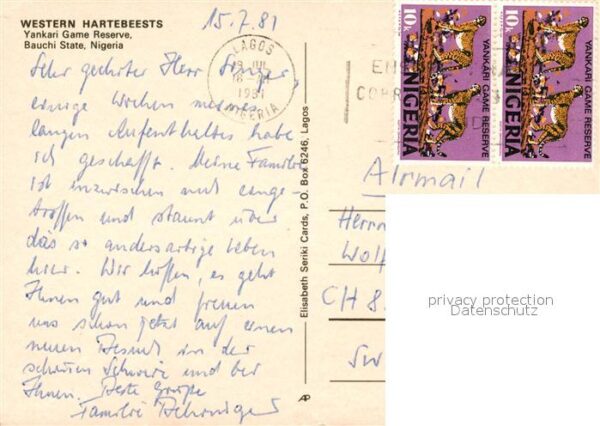 WESTERN HARTEBEESTS
Yankari Game Reserve,
Bauchi State, Nigeria
15.7.81
LAGOS
1981
NIGERIA
10k
YANKARI GAME RESERVE
NIGERIA
10k
YANKARI GAME RESERVE
NIGERIA
Sehr geehrter Herr
einige Wochen meines
langen Aufenthaltes habe
ich geschafft. Meine Familie
ist inzwischen mit einge-
troffen und staunt über
das so andersartige Leben
hier. Wir hoffen, es geht
Ihnen gut und freuen
uns schon jetzt auf einen
neuen Besuch in der
schönen Schweiz und bei
Ihnen. Beste Grüße
Familie
Elisabeth Seriki Cards, P.O. Box 6246, Lagos
AP
Airmail
Herrn
Wolf
CH 8
Sw
privacy protection
Datenschutz